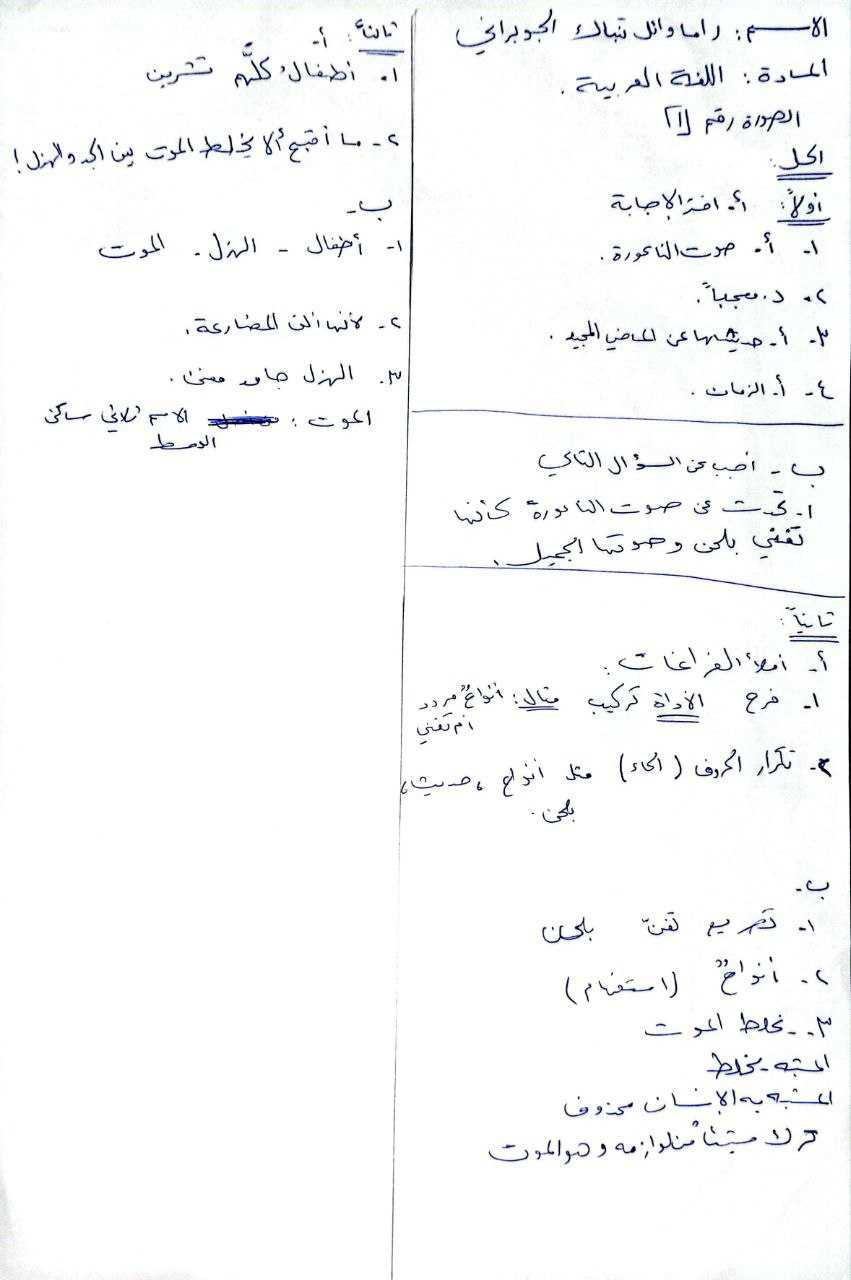 الاسم: راما وائل تباك الجوبراني
المادة: اللغة العربية.
الصورة رقم [١]
الحل:
أولاً: أ- اختر الإجابة
١- أ- صوت الناعورة.
٢- د. معجباً.
٣- أ- حديثها عن الماضي المجيد.
٤- أ- الزمان.
ب- أجب عن السؤال التالي
١- تحدث عن صوت الناعورة كأنها
تغني بلحن وصوتها الجميل.
ثانياً:
أ- املأ الفراغات:
١- فرح الأداة تركيب مثال: أنواحٌ مردد
أم تغني
٢- تكرار الحروف (الحاء) مثل أنواح، حديث،
بلحن.
ب-
١- تصريع تغنّ بلحن
٢- أنواحٌ (استفهام)
٣- يخلط الموت
المشبه يخلط
المشبه به الإنسان محذوف
ترك شيئاً من لوازمه وهو الموت
ثالثاً: أ-
١. أطفال كلَّهم تشرين
٢- ما أقبح ألا يخلط الموت بين الجد والهزل!
ب-
١- أطفال - الهزل - الموت
٢- لأنها ألف المضارعة.
٣. الهزل جامد معنى.
الموت: الاسم ثلاثي ساكن
الوسط